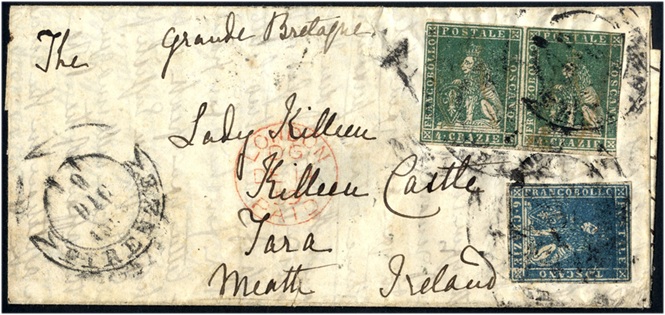 Grande Bretagne
The
Lady Killeen
Killeen Castle
Tara
Meath Ireland
FRANCOBOLLO POSTALE TOSCANO
4 CRAZIE
FRANCOBOLLO POSTALE TOSCANO
4 CRAZIE
FRANCOBOLLO POSTALE TOSCANO
LONDON
PAID
FIRENZE
9
DIC